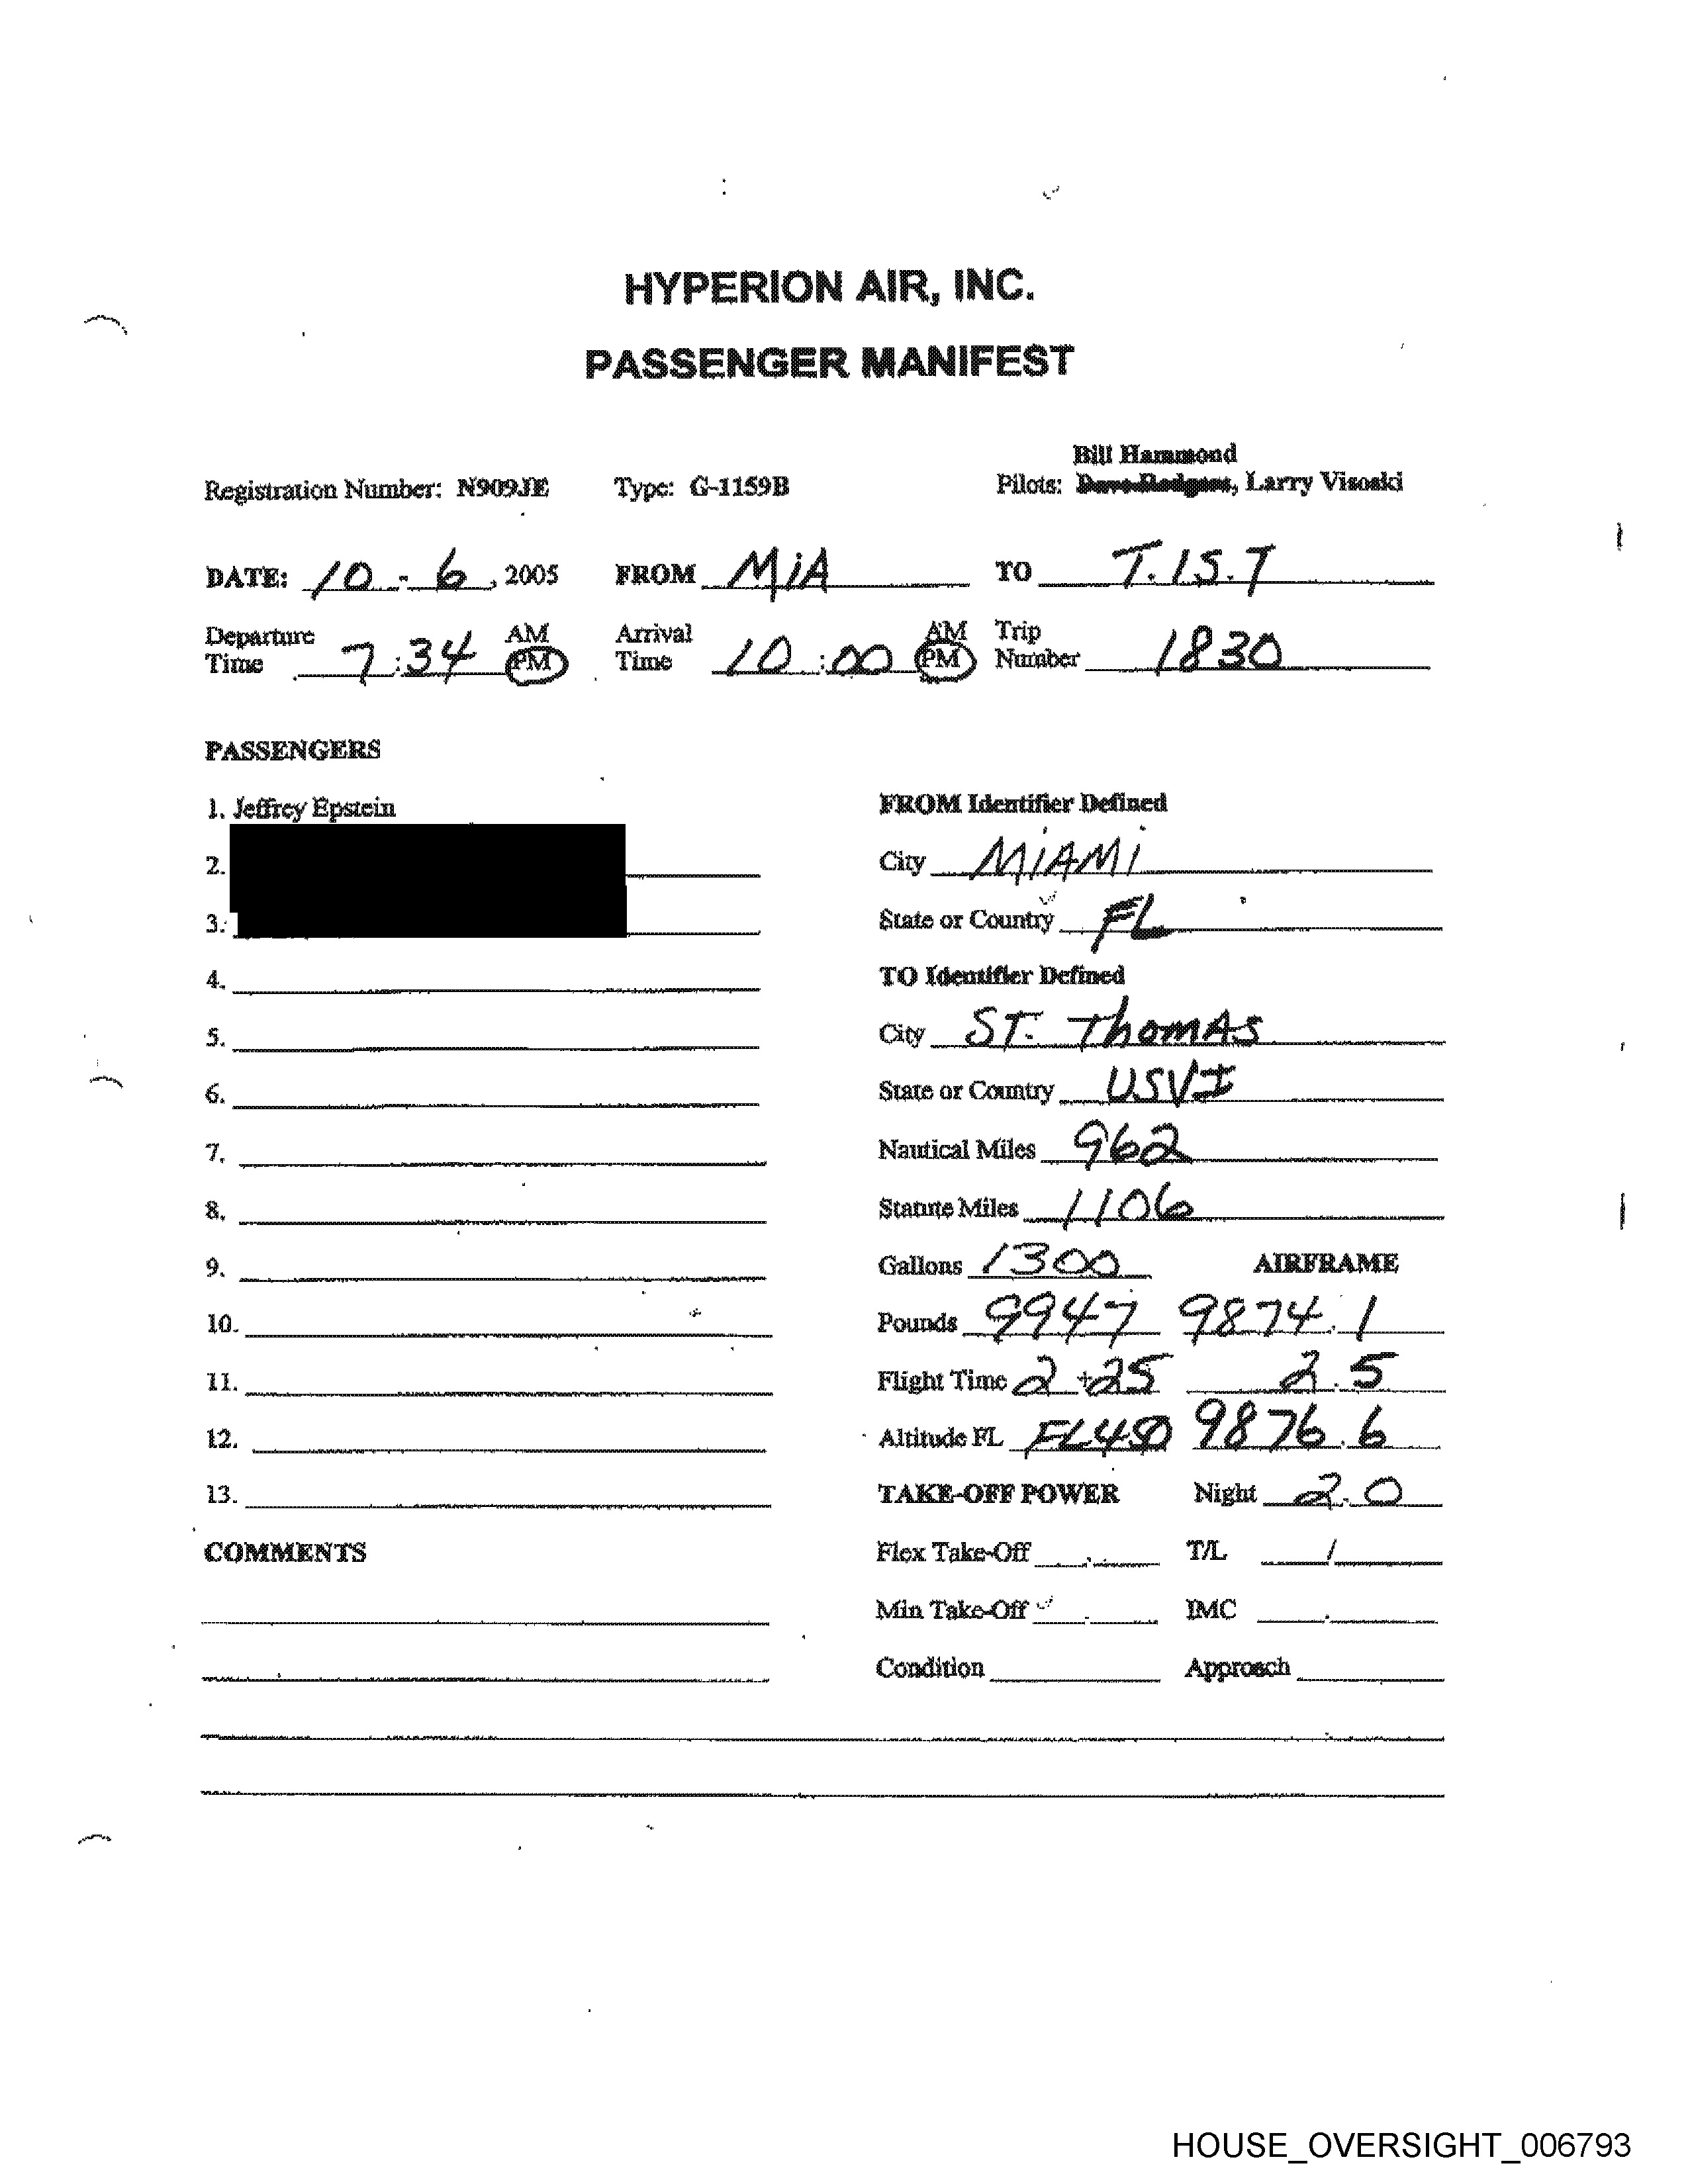 HYPERION AIR, INC.
PASSENGER MANIFEST
Bill Hammond
Registration Number: N909JE Type: G-1159B Pilots: Dave Rodgers, Larry Visoski
DATE: 10 - 6, 2005 FROM MiA TO T.IS.T
Departure Time 7:34 AM PM Arrival Time 10:00 AM PM Trip Number 1830
PASSENGERS
1. Jeffrey Epstein
2.
3.
4.
5.
6.
7.
8.
9.
10.
11.
12.
13.
COMMENTS
FROM Identifier Defined
City MiAMi
State or Country FL
TO Identifier Defined
City ST. ThomAS
State or Country USVI
Nautical Miles 962
Statute Miles 1106
Gallons 1300 AIRFRAME
Pounds 9947 9874.1
Flight Time 2+25 2.5
Altitude FL FL450 9876.6
TAKE-OFF POWER Night 2.0
Flex Take-Off T/L /
Min Take-Off IMC
Condition Approach
HOUSE_OVERSIGHT_006793